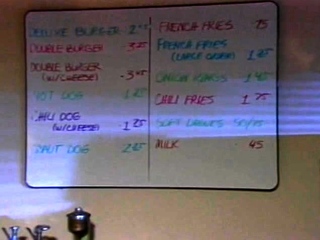 DELUXE BURGER
DOUBLE BURGER
DOUBLE BURGER
(W/CHEESE)
HOT DOG
CHILI DOG
(W/CHEESE) 1 25
KRAUT DOG
FRENCH FRIES 75
FRENCH FRIES
(LARGE ORDER) 1 25
ONION RINGS
CHILI FRIES 1 75
SOFT DRINKS 50/75
MILK 45